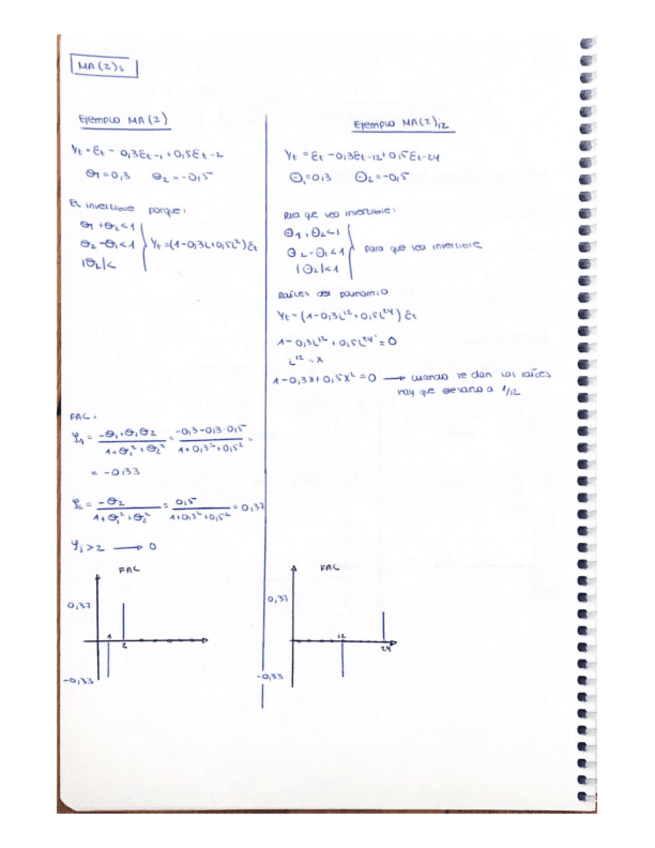 MA(2)s
Ejemplo MA(2)
Yt = Ɛt - 0,3Ɛt-1 + 0,5Ɛt-2
Θ1 = 0,3   Θ2 = -0,5
Es invertible porque:
Θ1 + Θ2 < 1
Θ2 - Θ1 < 1   Yt = (1-0,3L+0,5L²) Ɛt
|Θ2| <
FAC:
φ1 = -Θ1 + Θ1Θ2 / 1+Θ1²+Θ2² = -0,3-0,3·0,5 / 1+0,3²+0,5² =
= -0,33
φ2 = -Θ2 / 1+Θ1²+Θ2² = 0,5 / 1+0,3²+0,5² = 0,37
φj > 2 → 0
FAC
0,37
1
2
-0,33
Ejemplo MA(2)12
Yt = Ɛt - 0,3Ɛt-12 + 0,5Ɛt-24
Θ1 = 0,3   Θ2 = -0,5
Para que sea invertible:
Θ1 + Θ2 < 1
Θ2 - Θ1 < 1   para que sea invertible
|Θ2| < 1
Raíces del polinomio
Yt = (1-0,3L¹² + 0,5L²⁴) Ɛt
1 - 0,3L¹² + 0,5L²⁴ = 0
L¹² = x
1 - 0,3x + 0,5x² = 0 → cuando te dan las raíces
hay que elevarlo a 1/12
FAC
0,37
12
24
-0,33